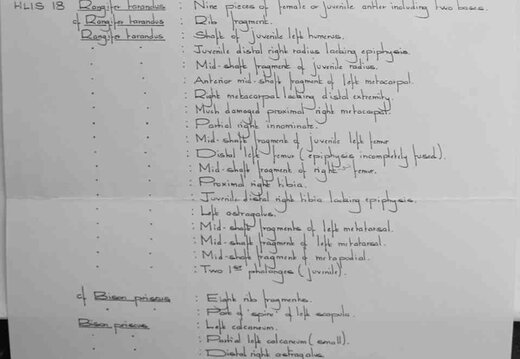 HLIS 18 Rangifer tarandus : Nine pieces of female or juvenile antler including two bases.
cf Rangifer tarandus : Rib fragment.
Rangifer tarandus : Shaft of juvenile left humerus.
" " : Juvenile distal right radius lacking epiphysis.
" " : Mid-shaft fragment of juvenile radius.
" " : Anterior mid-shaft fragment of left metacarpal.
" " : Right metacarpal lacking distal extremity.
" " : Much damaged proximal right metacarpal.
" " : Partial right innominate.
" " : Mid-shaft fragment of juvenile left femur
" " : Distal left femur (epiphysis incompletely fused).
" " : Mid-shaft fragment of right femur.
" " : Proximal right tibia.
" " : Juvenile distal right tibia lacking epiphysis.
" " : Left astragalus.
" " : Mid-shaft fragments of left metatarsal.
" " : Mid-shaft fragment of left metatarsal.
" " : Mid-shaft fragment of metapodial.
" " : Two 1st phalanges (juvenile).
cf Bison priscus : Eight rib fragments.
" " " : Part of 'spine' of left scapula.
Bison priscus : Left calcaneum.
" " : Partial left calcaneum (small).
" " : Distal right astragalus